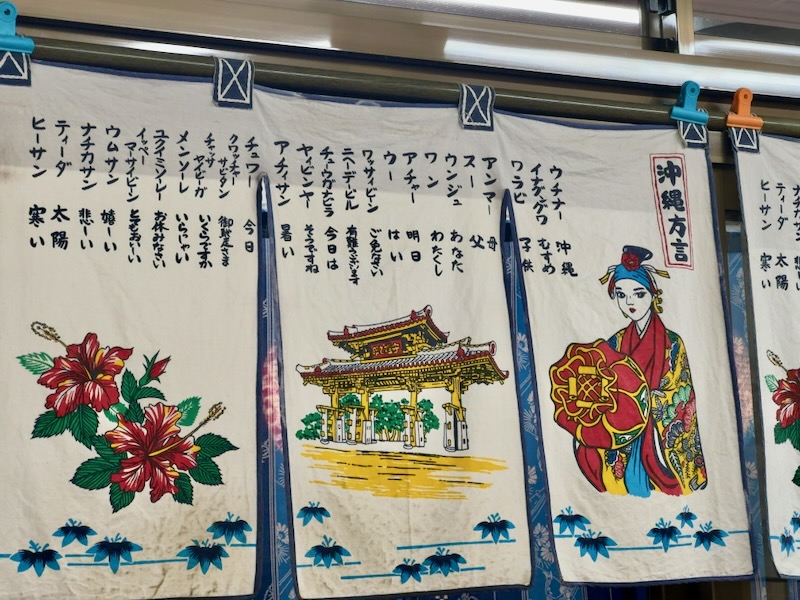 沖縄方言
ウチナー 沖縄
イナグングワ むすめ
ワラビ 子供
アンマー 母
スー 父
ウンジュ あなた
ワン わたくし
アチャー 明日
ウー はい
ワッサイビーン ご免なさい
ニヘーデービル 有難うございます
チューウガナビラ 今日は
ヤイビンヤー そうですね
アチィサン 暑い
チュワー 今日
クワッチャーサビタン 御馳走さま
チャッサヤイビーガ いくらですか
メンソーレ いらっしゃい
ユクイミソーレー お休みなさい
イッペーマーサイビーン とてもおいしい
ウムサン 嬉しい
ナチカサン 悲しい
ティーダ 太陽
ヒーサン 寒い
ナチカサン 悲しい
ティーダ 太陽
ヒーサン 寒い